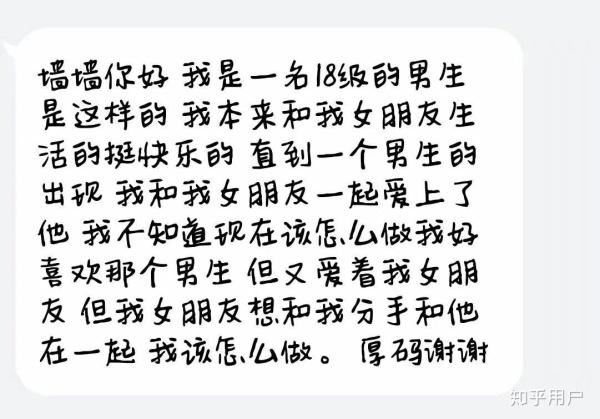 墙墙你好 我是一名18级的男生
是这样的 我本来和我女朋友生
活的挺快乐的 直到一个男生的
出现 我和我女朋友一起爱上了
他 我不知道现在该怎么做我好
喜欢那个男生 但又爱着我女朋
友 但我女朋友想和我分手和他
在一起 我该怎么做。 厚码谢谢
知乎用户